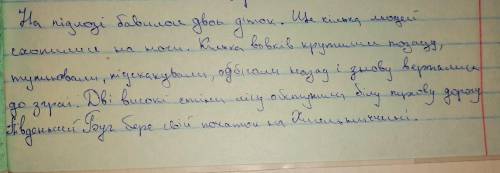 На підлозі бавилом двоє діток. Ще кілька людей
схопили на ноги. Кілька вовків крутились позаду,
тупцювали, підскакували, одбігали назад і знову вертались
до зграї. Дві високі стіни лісу обступили білу пухову дорогу
Південний Буг бере свій початок на Хмельниччині.